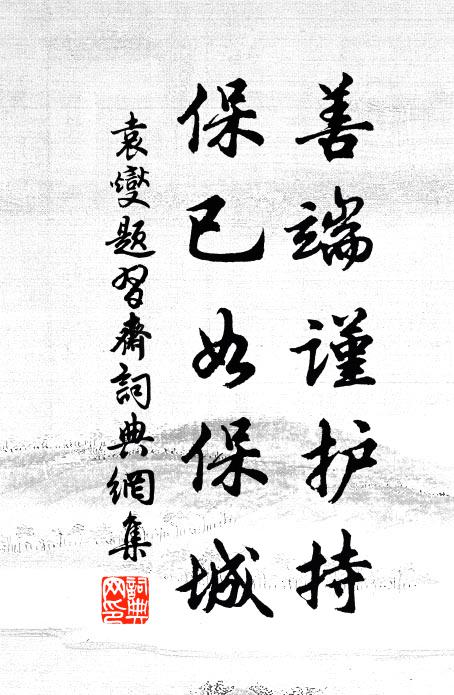 善端谨护持
保已如保城
袁燮题习斋詞典網集
詞典网印